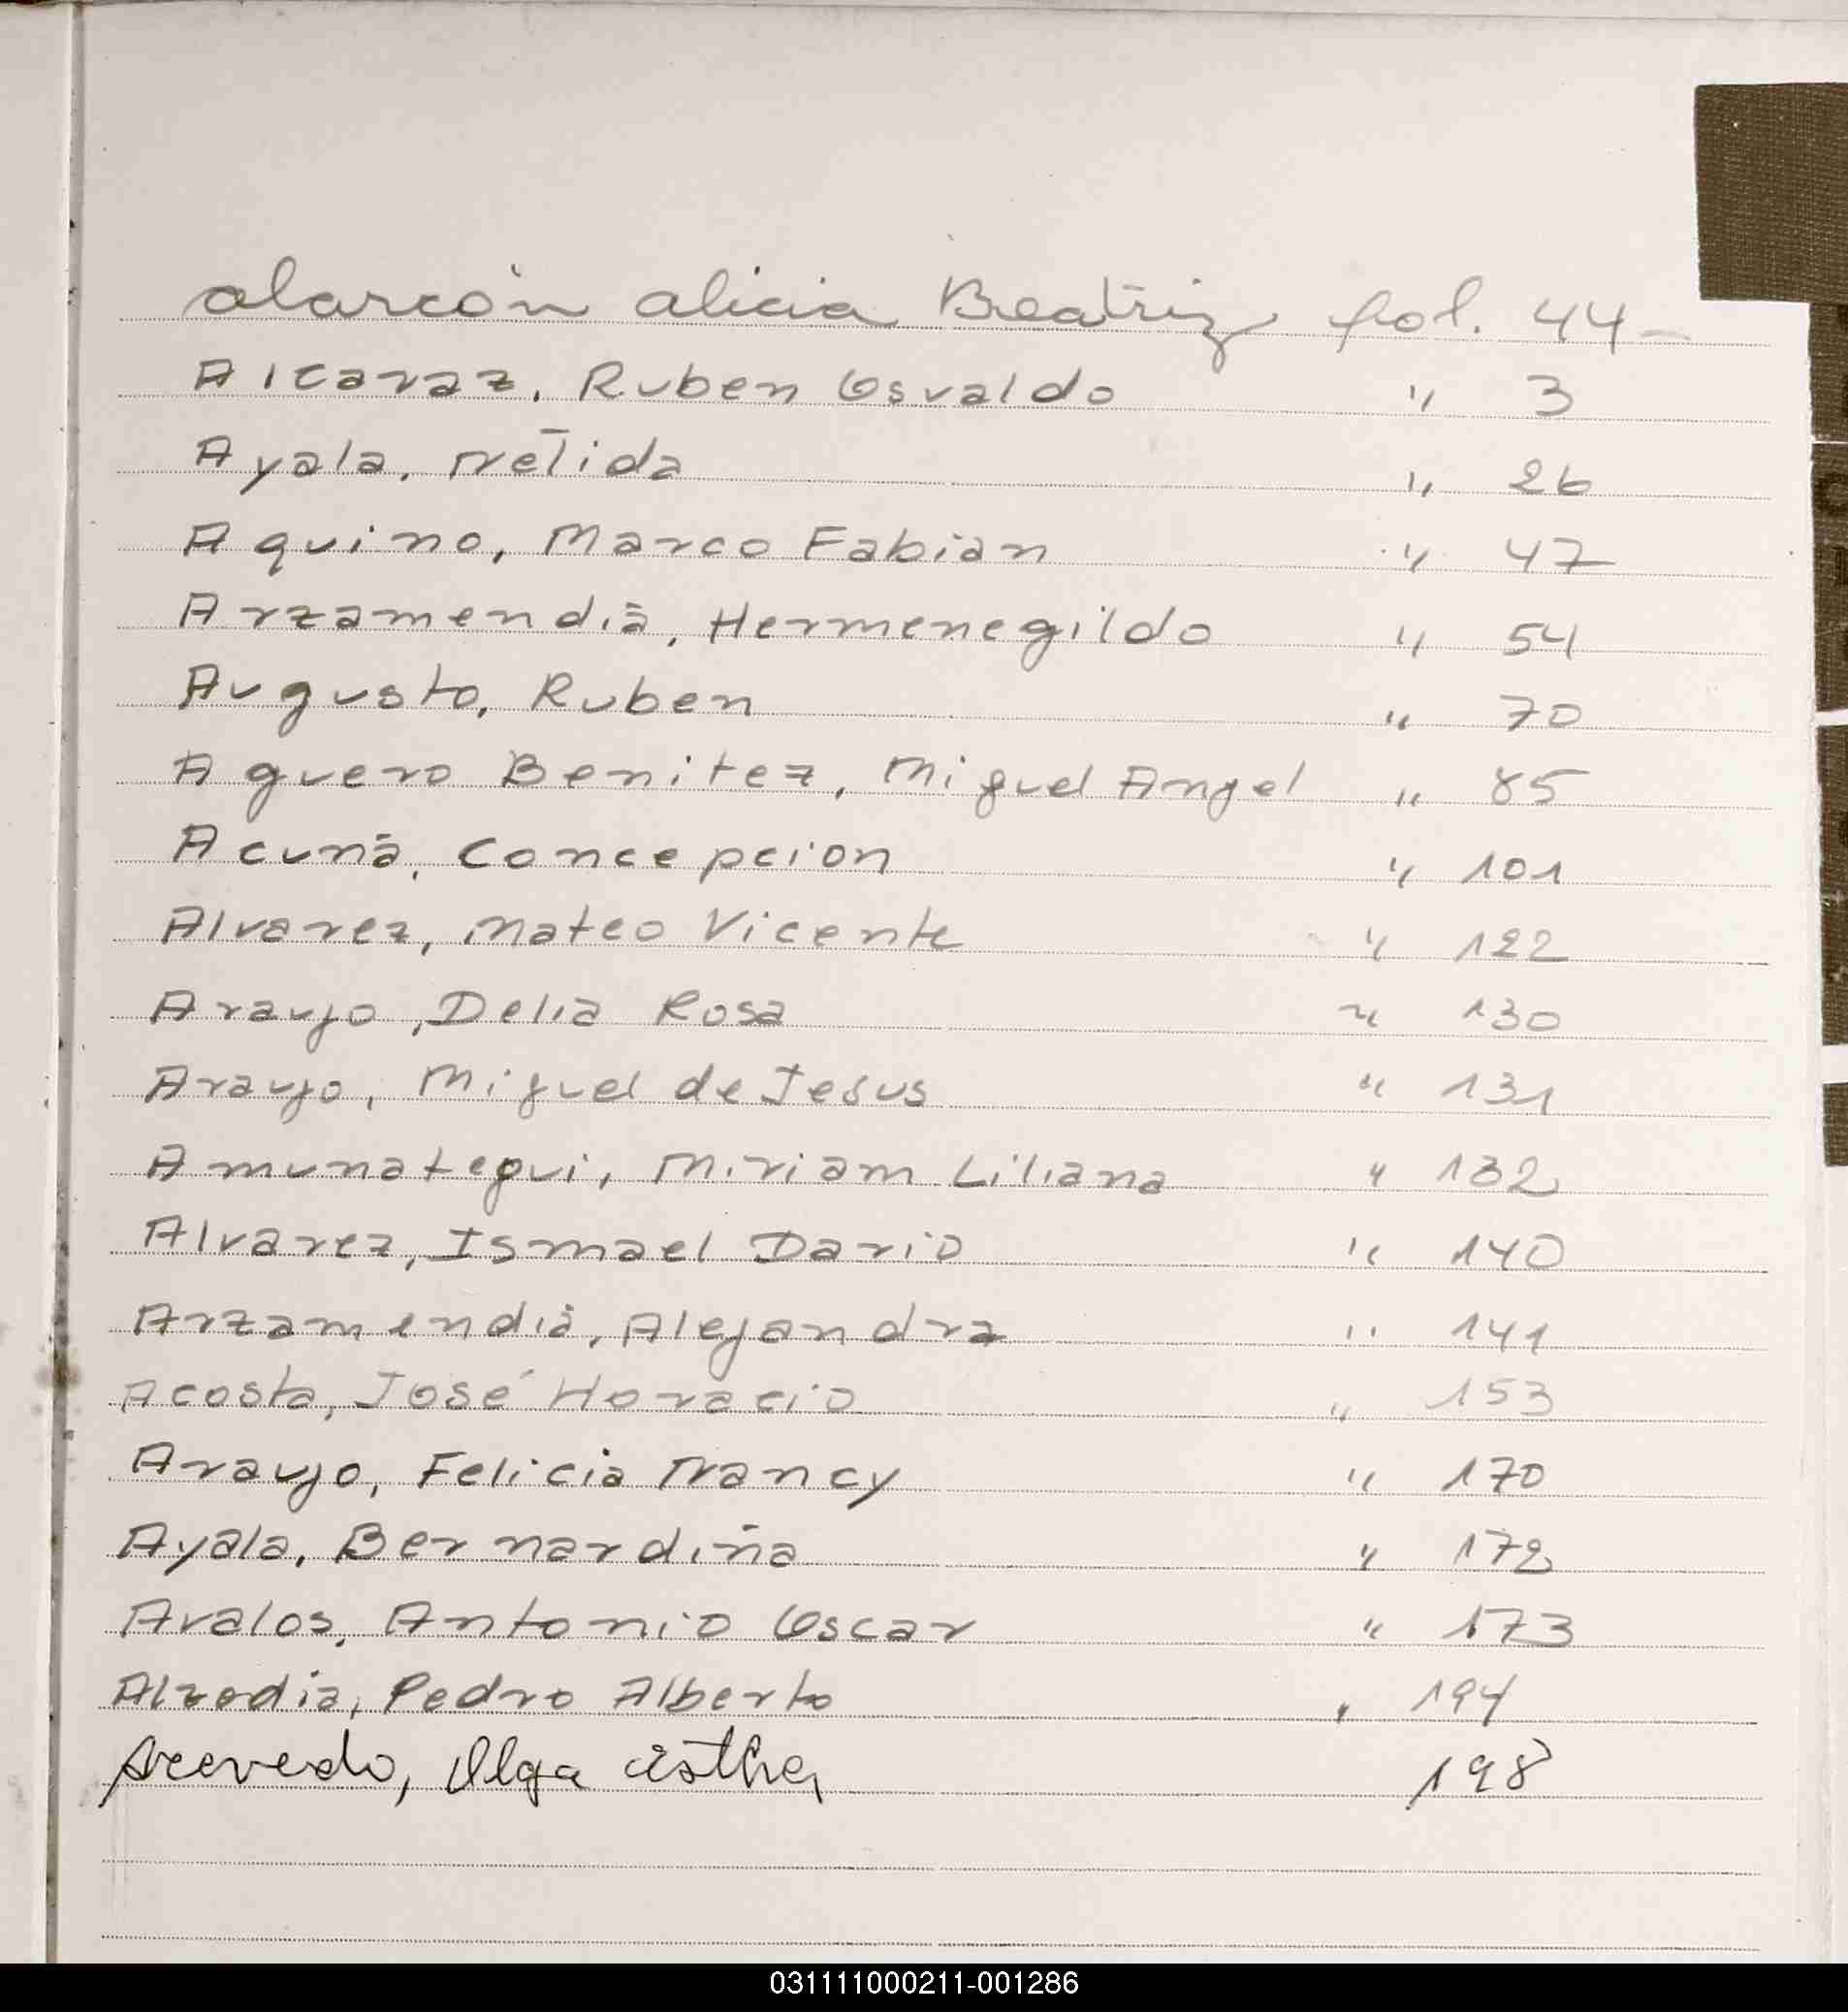 Alarcón Alicia Beatriz fol. 44-
Alcaraz, Ruben Osvaldo " 3
Ayala, Nélida " 26
Aquino, Marco Fabian " 47
Arzamendia, Hermenegildo " 54
Augusto, Ruben " 70
Aguero Benitez, Miguel Angel " 85
Acuña, Concepcion " 101
Alvarez, Mateo Vicente " 122
Araujo, Delia Rosa " 130
Araujo, Miguel de Jesus " 131
Amunategui, Miriam Liliana " 132
Alvarez, Ismael Dario " 140
Arzamendia, Alejandra " 141
Acosta, José Horacio " 153
Araujo, Felicia Nancy " 170
Ayala, Bernardina " 172
Avalos, Antonio Oscar " 173
Pedro Alberto " 194
Acevedo, Olga Esther 198
031111000211-001286